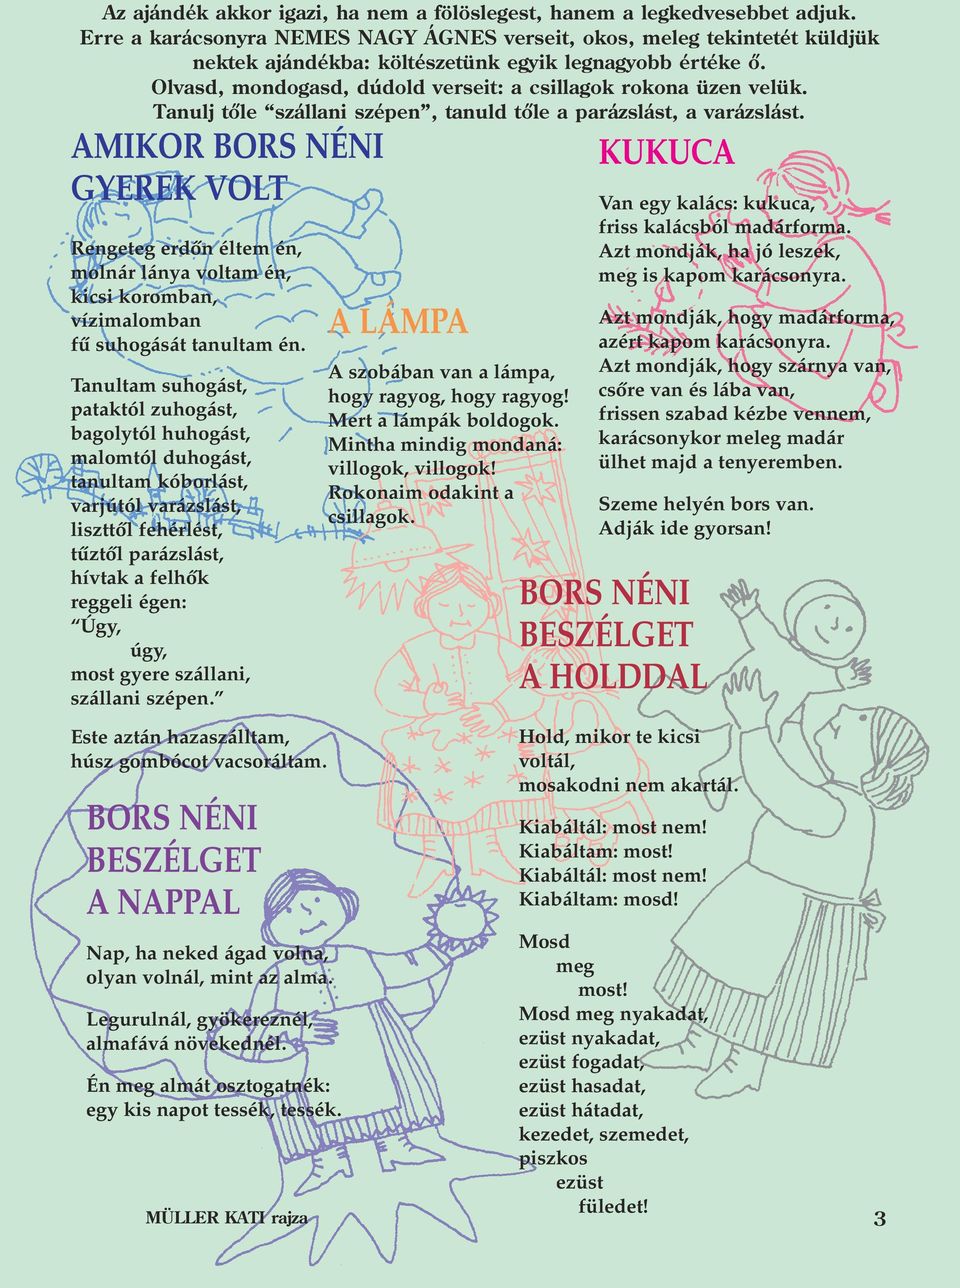 Az ajándék akkor igazi, ha nem a fölöslegest, hanem a legkedvesebbet adjuk.
Erre a karácsonyra NEMES NAGY ÁGNES verseit, okos, meleg tekintetét küldjük
nektek ajándékba: költészetünk egyik legnagyobb értéke ő.
Olvasd, mondogasd, dúdold verseit: a csillagok rokona üzen velük.
Tanulj tőle “szállani szépen”, tanuld tőle a parázslást, a varázslást.
AMIKOR BORS NÉNI
GYEREK VOLT
Rengeteg erdőn éltem én,
molnár lánya voltam én,
kicsi koromban,
vízimalomban
fű suhogását tanultam én.
Tanultam suhogást,
pataktól zuhogást,
bagolytól huhogást,
malomtól duhogást,
tanultam kóborlást,
varjútól varázslást,
liszttől fehérlést,
tűztől parázslást,
hívtak a felhők
reggeli égen:
“Úgy,
úgy,
most gyere szállani,
szállani szépen.”
Este aztán hazaszálltam,
húsz gombócot vacsoráltam.
BORS NÉNI
BESZÉLGET
A NAPPAL
Nap, ha neked ágad volna,
olyan volnál, mint az alma.
Legurulnál, gyökereznél,
almafává növekednél.
Én meg almát osztogatnék:
egy kis napot tessék, tessék.
A LÁMPA
A szobában van a lámpa,
hogy ragyog, hogy ragyog!
Mert a lámpák boldogok.
Mintha mindig mondaná:
villogok, villogok!
Rokonaim odakint a
csillagok.
KUKUCA
Van egy kalács: kukuca,
friss kalácsból madárforma.
Azt mondják, ha jó leszek,
meg is kapom karácsonyra.
Azt mondják, hogy madárforma,
azért kapom karácsonyra.
Azt mondják, hogy szárnya van,
csőre van és lába van,
frissen szabad kézbe vennem,
karácsonykor meleg madár
ülhet majd a tenyeremben.
Szeme helyén bors van.
Adják ide gyorsan!
BORS NÉNI
BESZÉLGET
A HOLDDAL
Hold, mikor te kicsi
voltál,
mosakodni nem akartál.
Kiabáltál: most nem!
Kiabáltam: most!
Kiabáltál: most nem!
Kiabáltam: mosd!
Mosd
meg
most!
Mosd meg nyakadat,
ezüst nyakadat,
ezüst fogadat,
ezüst hasadat,
ezüst hátadat,
kezedet, szemedet,
piszkos
ezüst
füledet!
MÜLLER KATI rajza
3